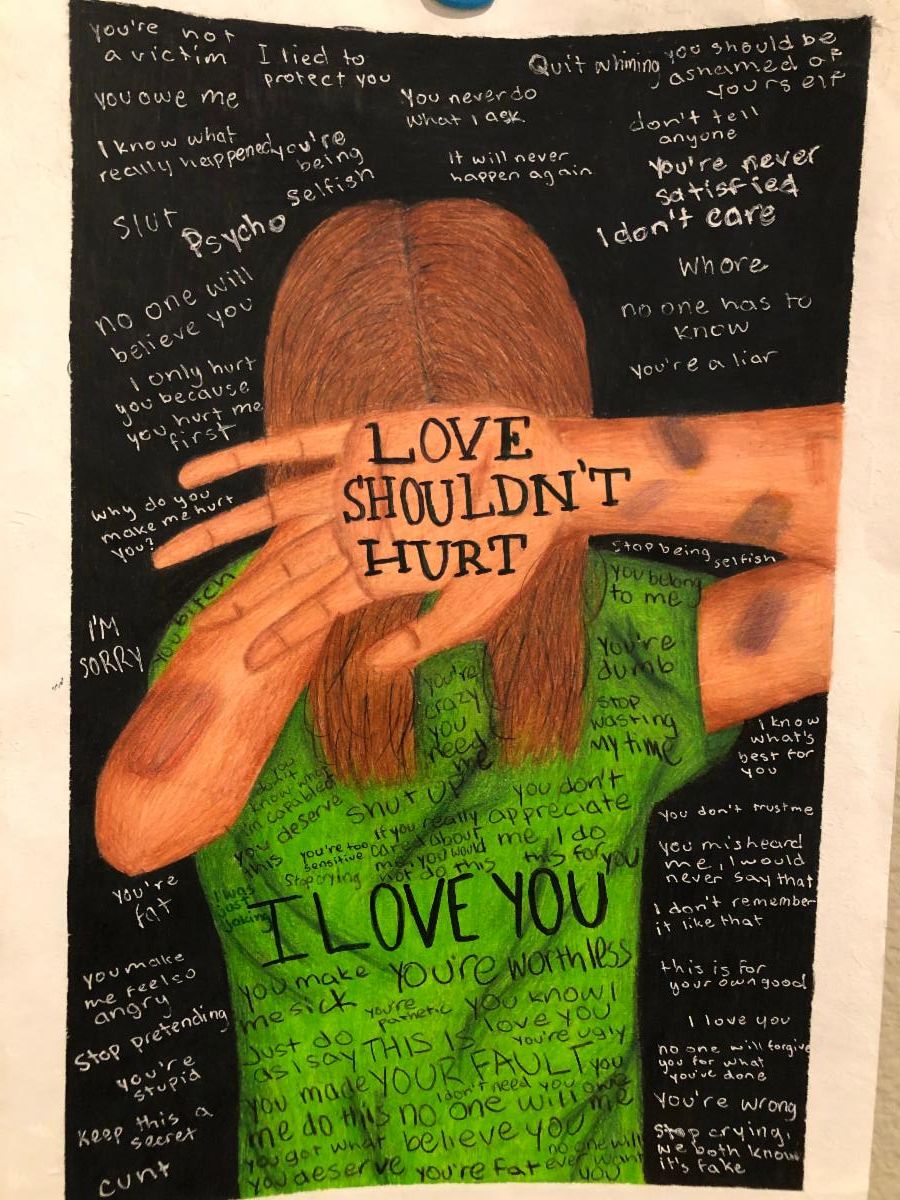 you're not
a victim
I lied to
protect you
Quit whining
you should be
ashamed of
yourself
you owe me
You never do
what I ask
don't tell
anyone
I know what
really happened
you're
being
selfish
It will never
happen again
You're never
satisfied
slut
Psycho
I don't care
Whore
no one will
believe you
no one has to
know
you're a liar
I only hurt
you because
you hurt me
first
LOVE
SHOULDN'T
HURT
why do you
make me hurt
you?
Stop being
selfish
You bitch
you belong
to me
I'M
SORRY
You're
dumb
you're
crazy
you
need
me
stop
wasting
my time
I know
what's
best for
you
you deserve
this
shut up
you don't
appreciate
me, I do
this for
you
If you really
care about
me, you would
not do this
you're too
sensitive
Stop crying
I was
just
joking
you don't trust me
you misheard
me, I would
never say that
you're
fat
I LOVE YOU
I don't remember
it like that
you make
me feel so
angry
you make
me sick
you're worthless
you're
pathetic
you know I
love you
this is for
your own good
Stop pretending
Just do
as I say
THIS IS
YOUR FAULT
you're ugly
I love you
you're
stupid
you made
me do this
I don't need you
no one will
believe you
you owe
me
no one will forgive
you for what
you've done
keep this a
secret
you got what
you deserve
you're fat
no one will
ever want
you
you're wrong
cunt
stop crying,
we both know
it's fake